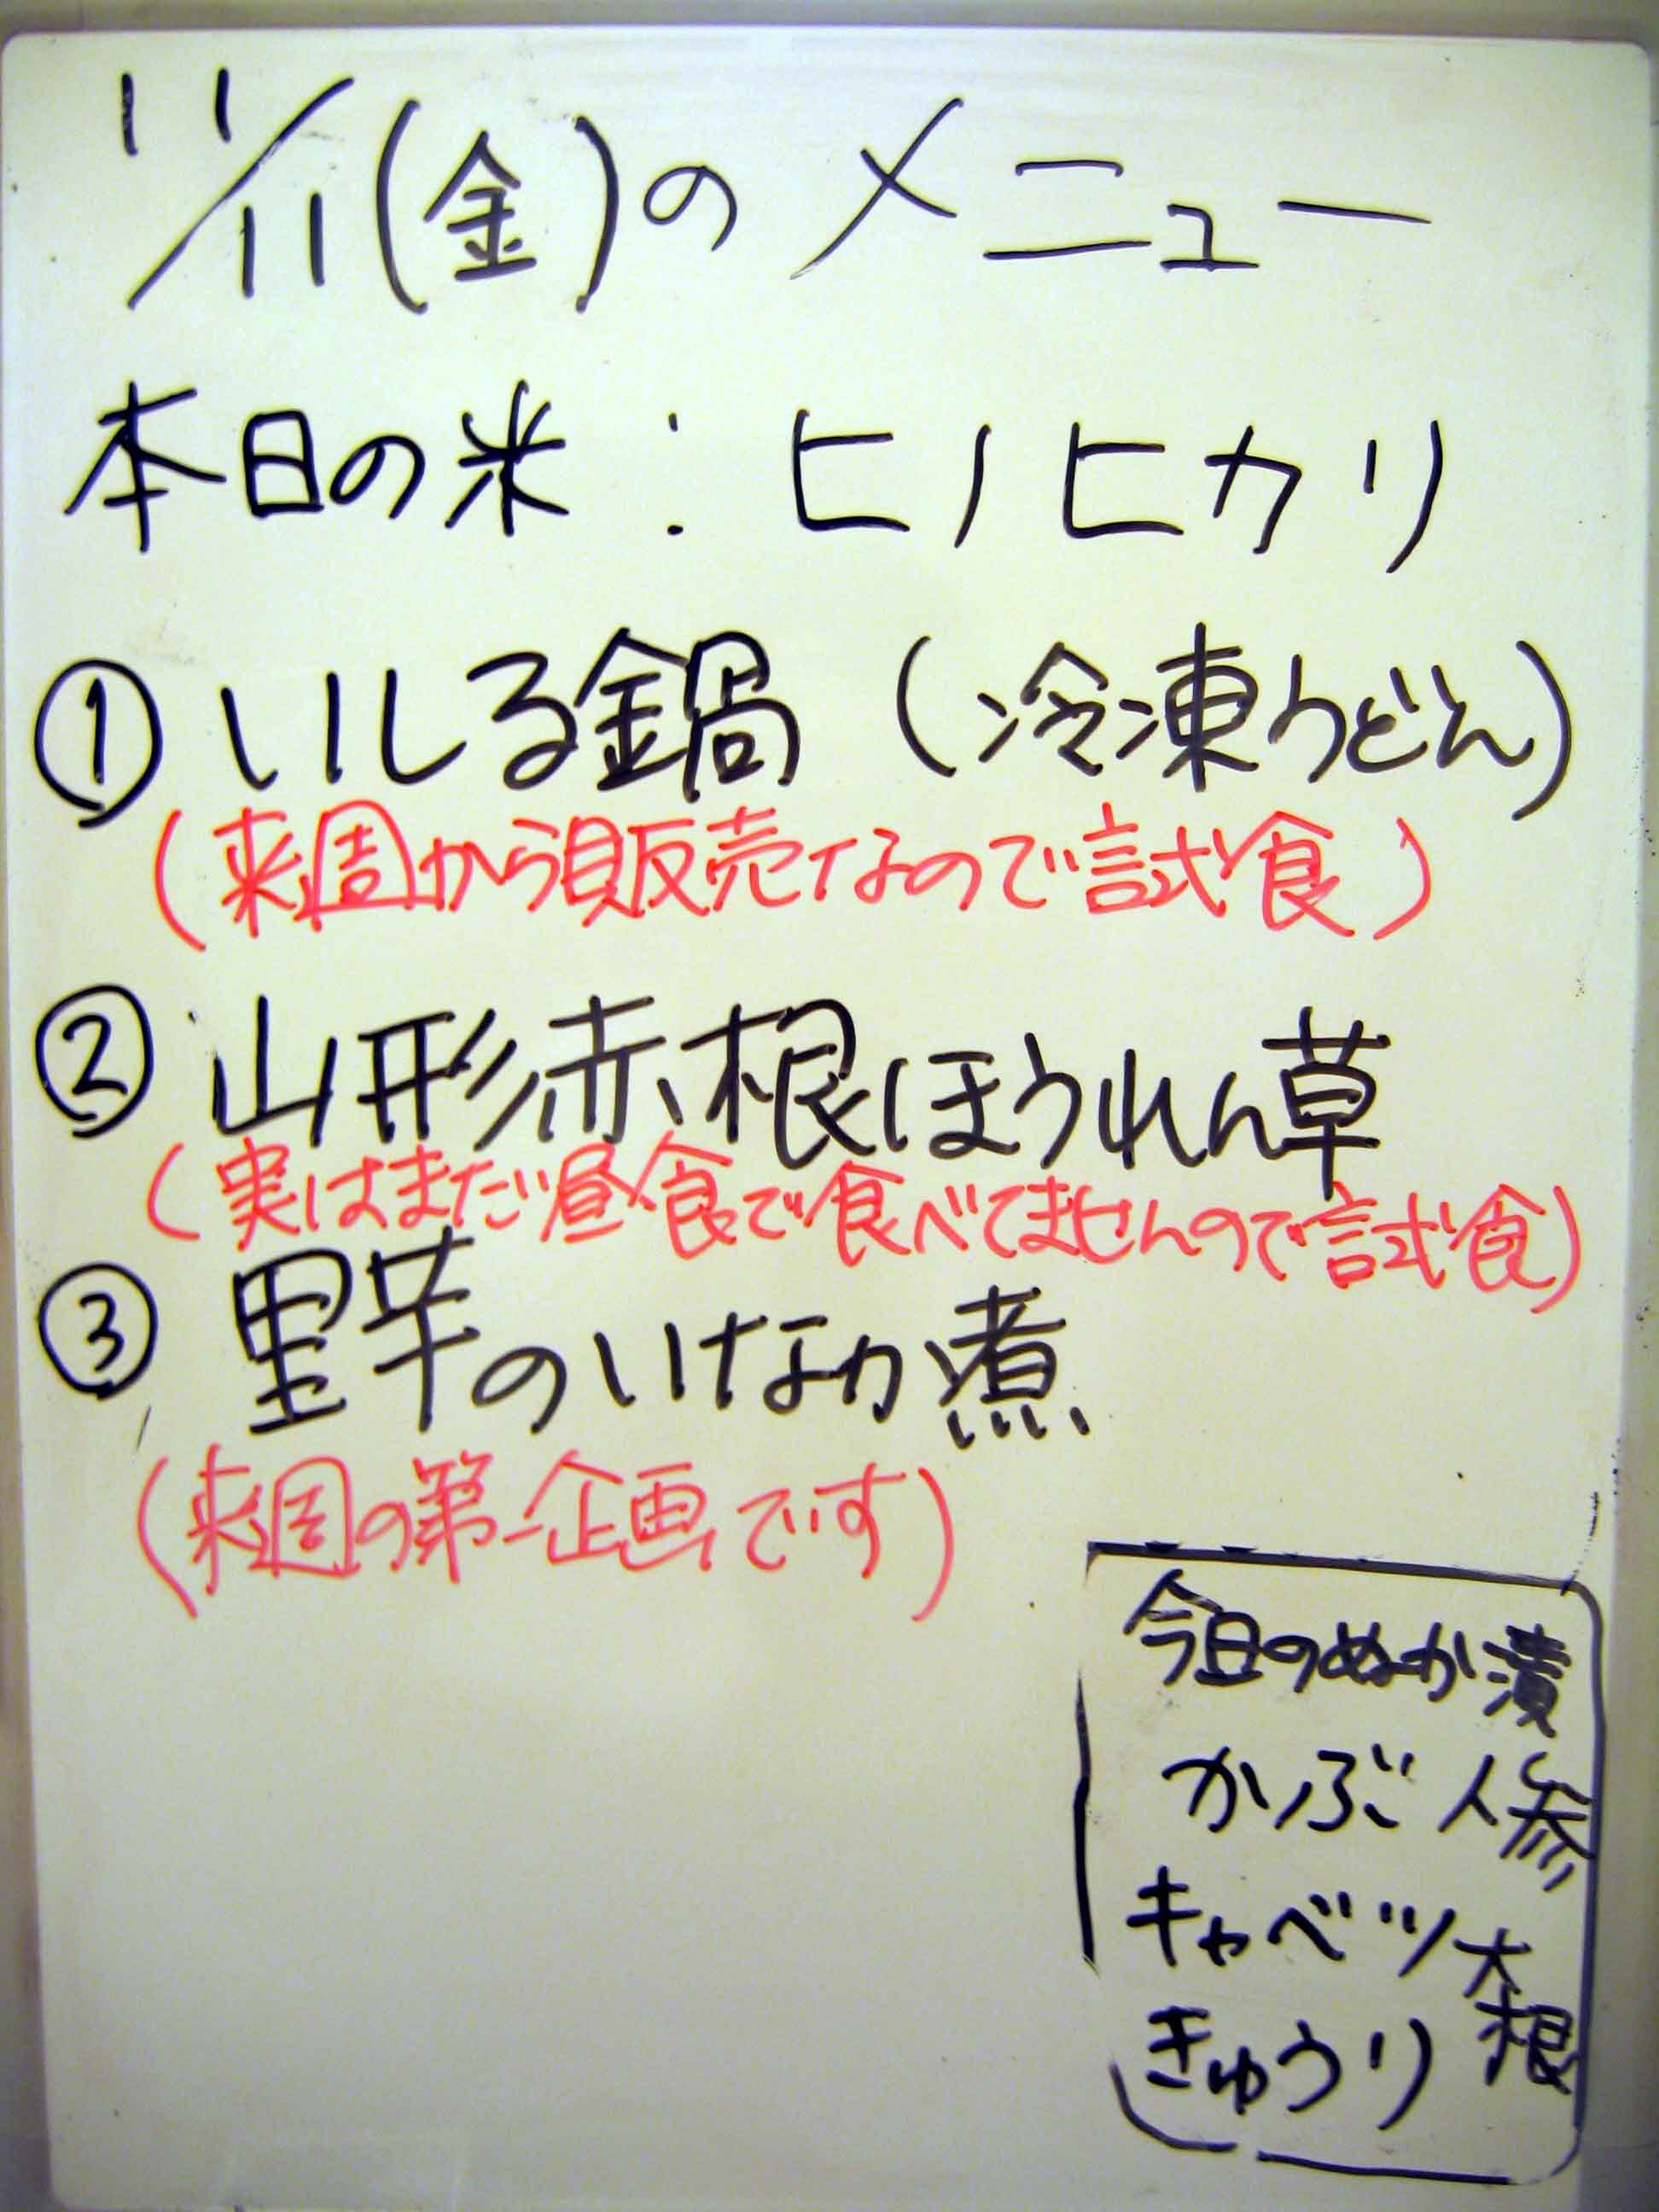 11/11(金)のメニュー
本日の米:ヒノヒカリ
①いしる鍋(冷凍うどん)
(来週から販売なので試食)
②山形赤根ほうれん草
(実はまだ昼食で食べてませんので試食)
③里芋のいなか煮
(来週の第一企画です)
今日のぬか漬
かぶ 人参
キャベツ 大根
きゅうり